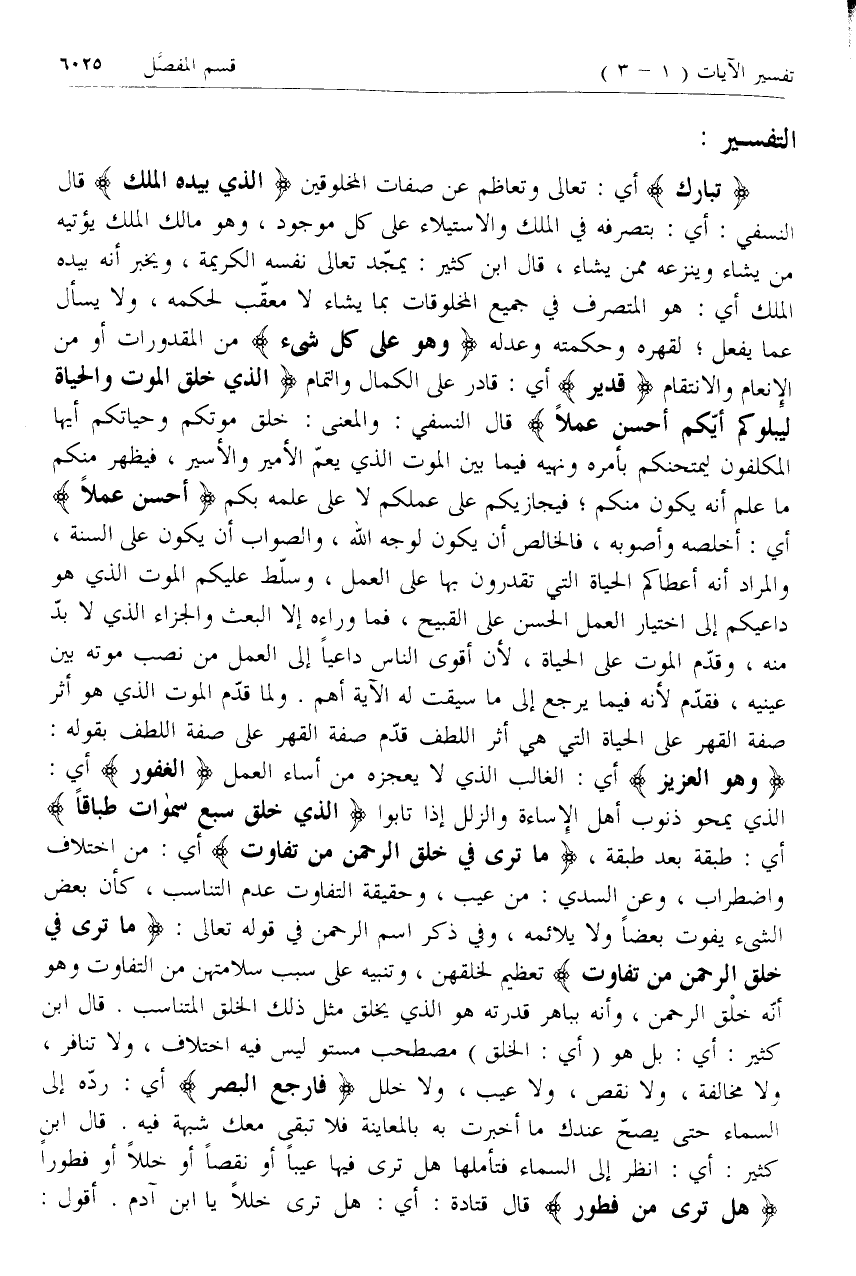 تفسير الآيات ( ١ - ٣ ) قسم المفصَّل ٦٠٢٥
التفسير :
﴿ تبارك ﴾ أي : تعالى وتعاظم عن صفات المخلوقين ﴿ الذي بيده الملك ﴾ قال
النسفي : أي : بتصرفه في الملك والاستيلاء على كل موجود ، وهو مالك الملك يؤتيه
من يشاء وينزعه ممن يشاء ، قال ابن كثير : يمجّد تعالى نفسه الكريمة ، ويخبر أنه بيده
الملك أي : هو المتصرف في جميع المخلوقات بما يشاء لا معقّب لحكمه ، ولا يسأل
عما يفعل ؛ لقهره وحكمته وعدله ﴿ وهو على كل شىء ﴾ من المقدورات أو من
الإنعام والانتقام ﴿ قدير ﴾ أي : قادر على الكمال والتمام ﴿ الذي خلق الموت والحياة
ليبلوكم أيّكم أحسن عملاً ﴾ قال النسفي : والمعنى : خلق موتكم وحياتكم أيها
المكلفون ليمتحنكم بأمره ونهيه فيما بين الموت الذي يعمّ الأمير والأسير ، فيظهر منكم
ما علم أنه يكون منكم ؛ فيجازيكم على عملكم لا على علمه بكم ﴿ أحسن عملاً ﴾
أي : أخلصه وأصوبه ، فالخالص أن يكون لوجه الله ، والصواب أن يكون على السنة ،
والمراد أنه أعطاكم الحياة التي تقدرون بها على العمل ، وسلّط عليكم الموت الذي هو
داعيكم إلى اختيار العمل الحسن على القبيح ، فما وراءه إلا البعث والجزاء الذي لا بدّ
منه ، وقدّم الموت على الحياة ، لأن أقوى الناس داعياً إلى العمل من نصب موته بين
عينيه ، فقدّم لأنه فيما يرجع إلى ما سيقت له الآية أهم . ولما قدّم الموت الذي هو أثر
صفة القهر على الحياة التي هي أثر اللطف قدّم صفة القهر على صفة اللطف بقوله :
﴿ وهو العزيز ﴾ أي : الغالب الذي لا يعجزه من أساء العمل ﴿ الغفور ﴾ أي :
الذي يمحو ذنوب أهل الإساءة والزلل إذا تابوا ﴿ الذي خلق سبع سمٰوات طباقاً ﴾
أي : طبقة بعد طبقة ، ﴿ ما ترى في خلق الرحمن من تفاوت ﴾ أي : من اختلاف
واضطراب ، وعن السدي : من عيب ، وحقيقة التفاوت عدم التناسب ، كأن بعض
الشىء يفوت بعضاً ولا يلائمه ، وفي ذكر اسم الرحمن في قوله تعالى : ﴿ ما ترى في
خلق الرحمن من تفاوت ﴾ تعظيم لخلقهن ، وتنبيه على سبب سلامتهن من التفاوت وهو
أنّه خلْق الرحمن ، وأنه بباهر قدرته هو الذي يخلق مثل ذلك الخلق المتناسب . قال ابن
كثير : أي : بل هو ( أي : الخلق ) مصطحب مستو ليس فيه اختلاف ، ولا تنافر ،
ولا مخالفة ، ولا نقص ، ولا عيب ، ولا خلل ﴿ فارجع البصر ﴾ أي : ردّه إلى
السماء حتى يصحّ عندك ما أخبرت به بالمعاينة فلا تبقى معك شبهة فيه . قال ابن
كثير : أي : انظر إلى السماء فتأملها هل ترى فيها عيباً أو نقصاً أو خللاً أو فطوراً
﴿ هل ترى من فطور ﴾ قال قتادة : أي : هل ترى خللاً يا ابن آدم . أقول :